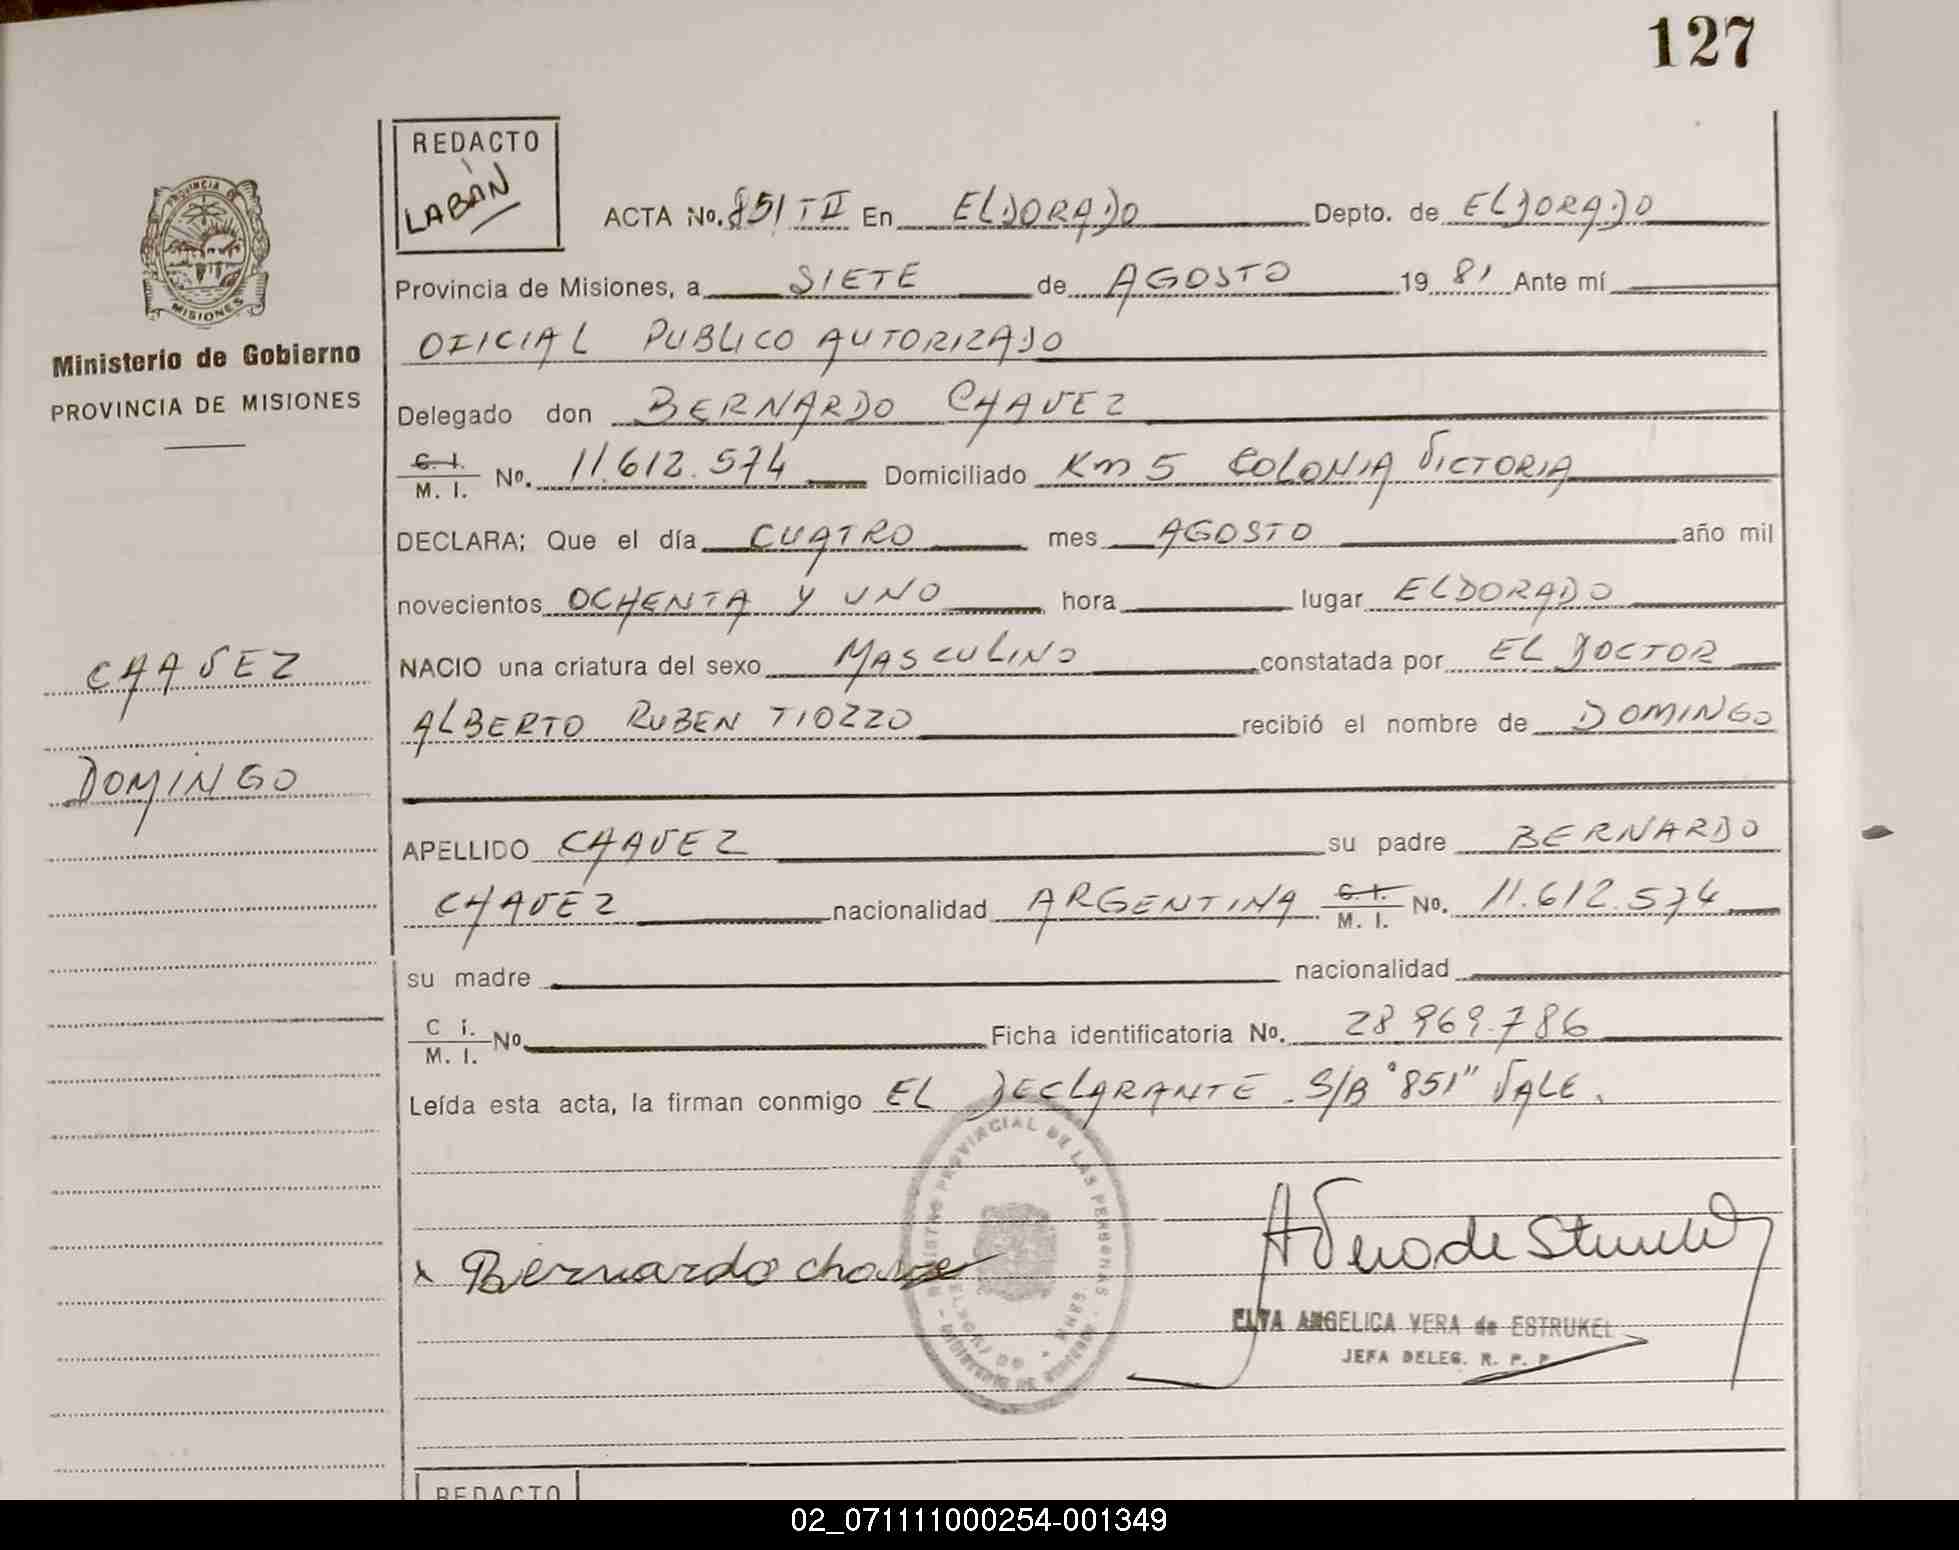 127
REDACTO
LABÁN
PROVINCIA DE
MISIONES
Ministerio de Gobierno
PROVINCIA DE MISIONES
ACTA No. 851 T II En ELDORADO Depto. de ELDORADO
Provincia de Misiones, a SIETE de AGOSTO 19 81 Ante mí
OFICIAL PUBLICO AUTORIZADO
Delegado don BERNARDO CHAVEZ
C. I. / M. I. No. 11.612.574 Domiciliado Km 5 COLONIA VICTORIA
DECLARA; Que el día CUATRO mes AGOSTO año mil
novecientos OCHENTA Y UNO hora lugar ELDORADO
CHAVEZ
NACIO una criatura del sexo MASCULINO constatada por EL DOCTOR
ALBERTO RUBEN TIOZZO recibió el nombre de DOMINGO
DOMINGO
APELLIDO CHAVEZ su padre BERNARDO
CHAVEZ nacionalidad ARGENTINA C. I. / M. I. No. 11.612.574
su madre nacionalidad
C i. / M. I. No Ficha identificatoria No. 28 969.786
Leída esta acta, la firman conmigo EL DECLARANTE. S/B "851" VALE.
PROVINCIAL DE LAS PERSONAS
x Bernardo chavez
ELVA ANGELICA VERA de ESTRUKEL
JEFA DELEG. R. P. P.
REDACTO
02_071111000254-001349